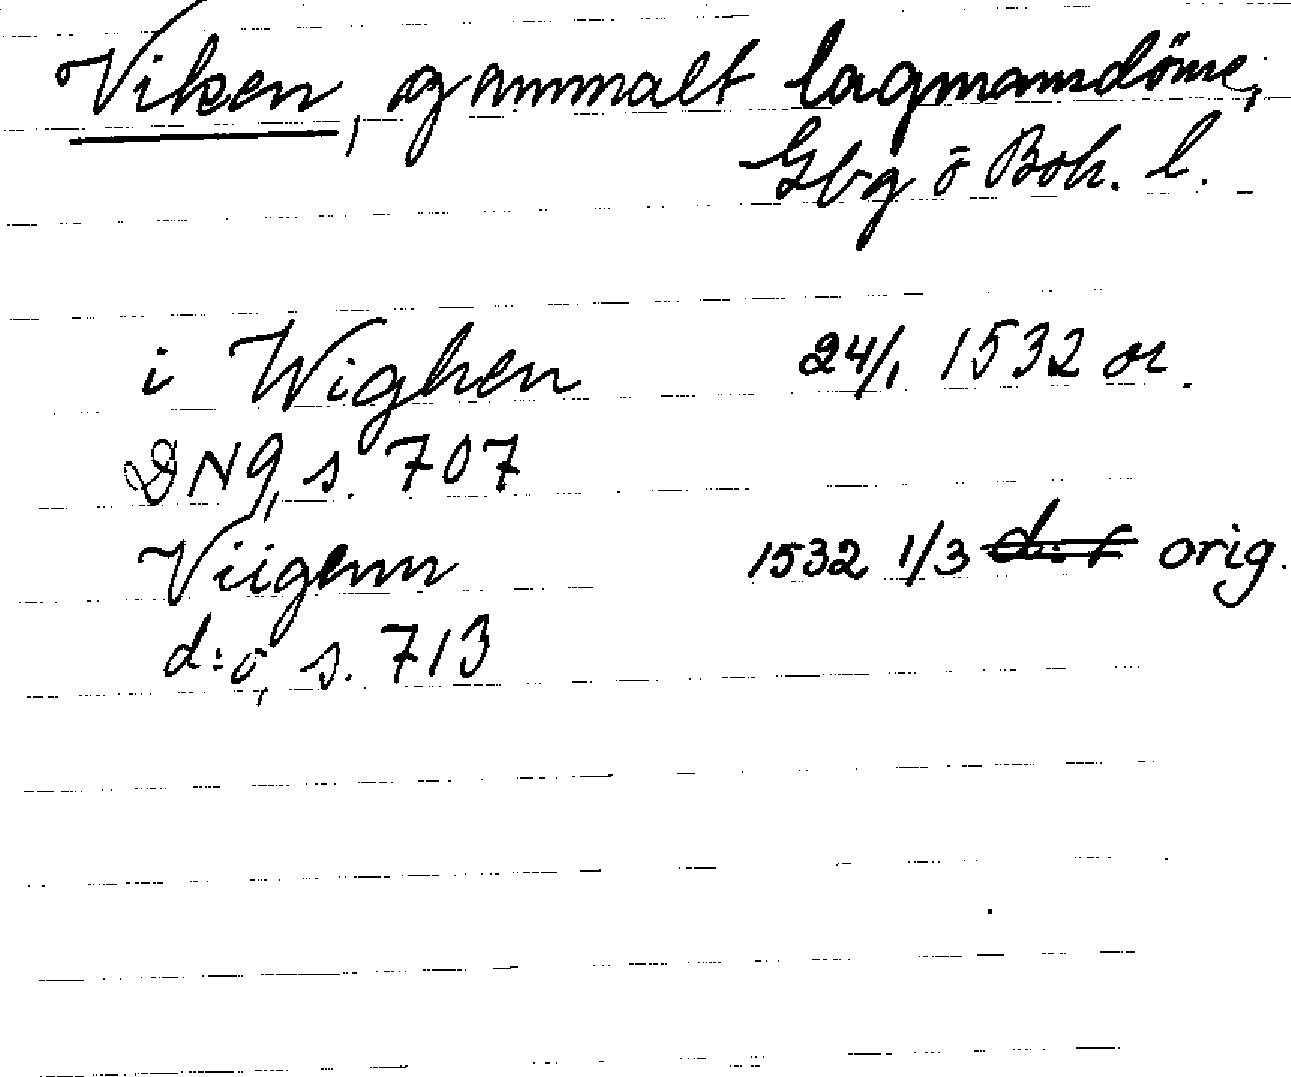 Viken, gammalt lagmansdöme,
Gbg o Boh. l.
i Wighen 24/1 1532 or.
DN 9, s. 707
Viigenn 1532 1/3 orig.
d:o, s. 713